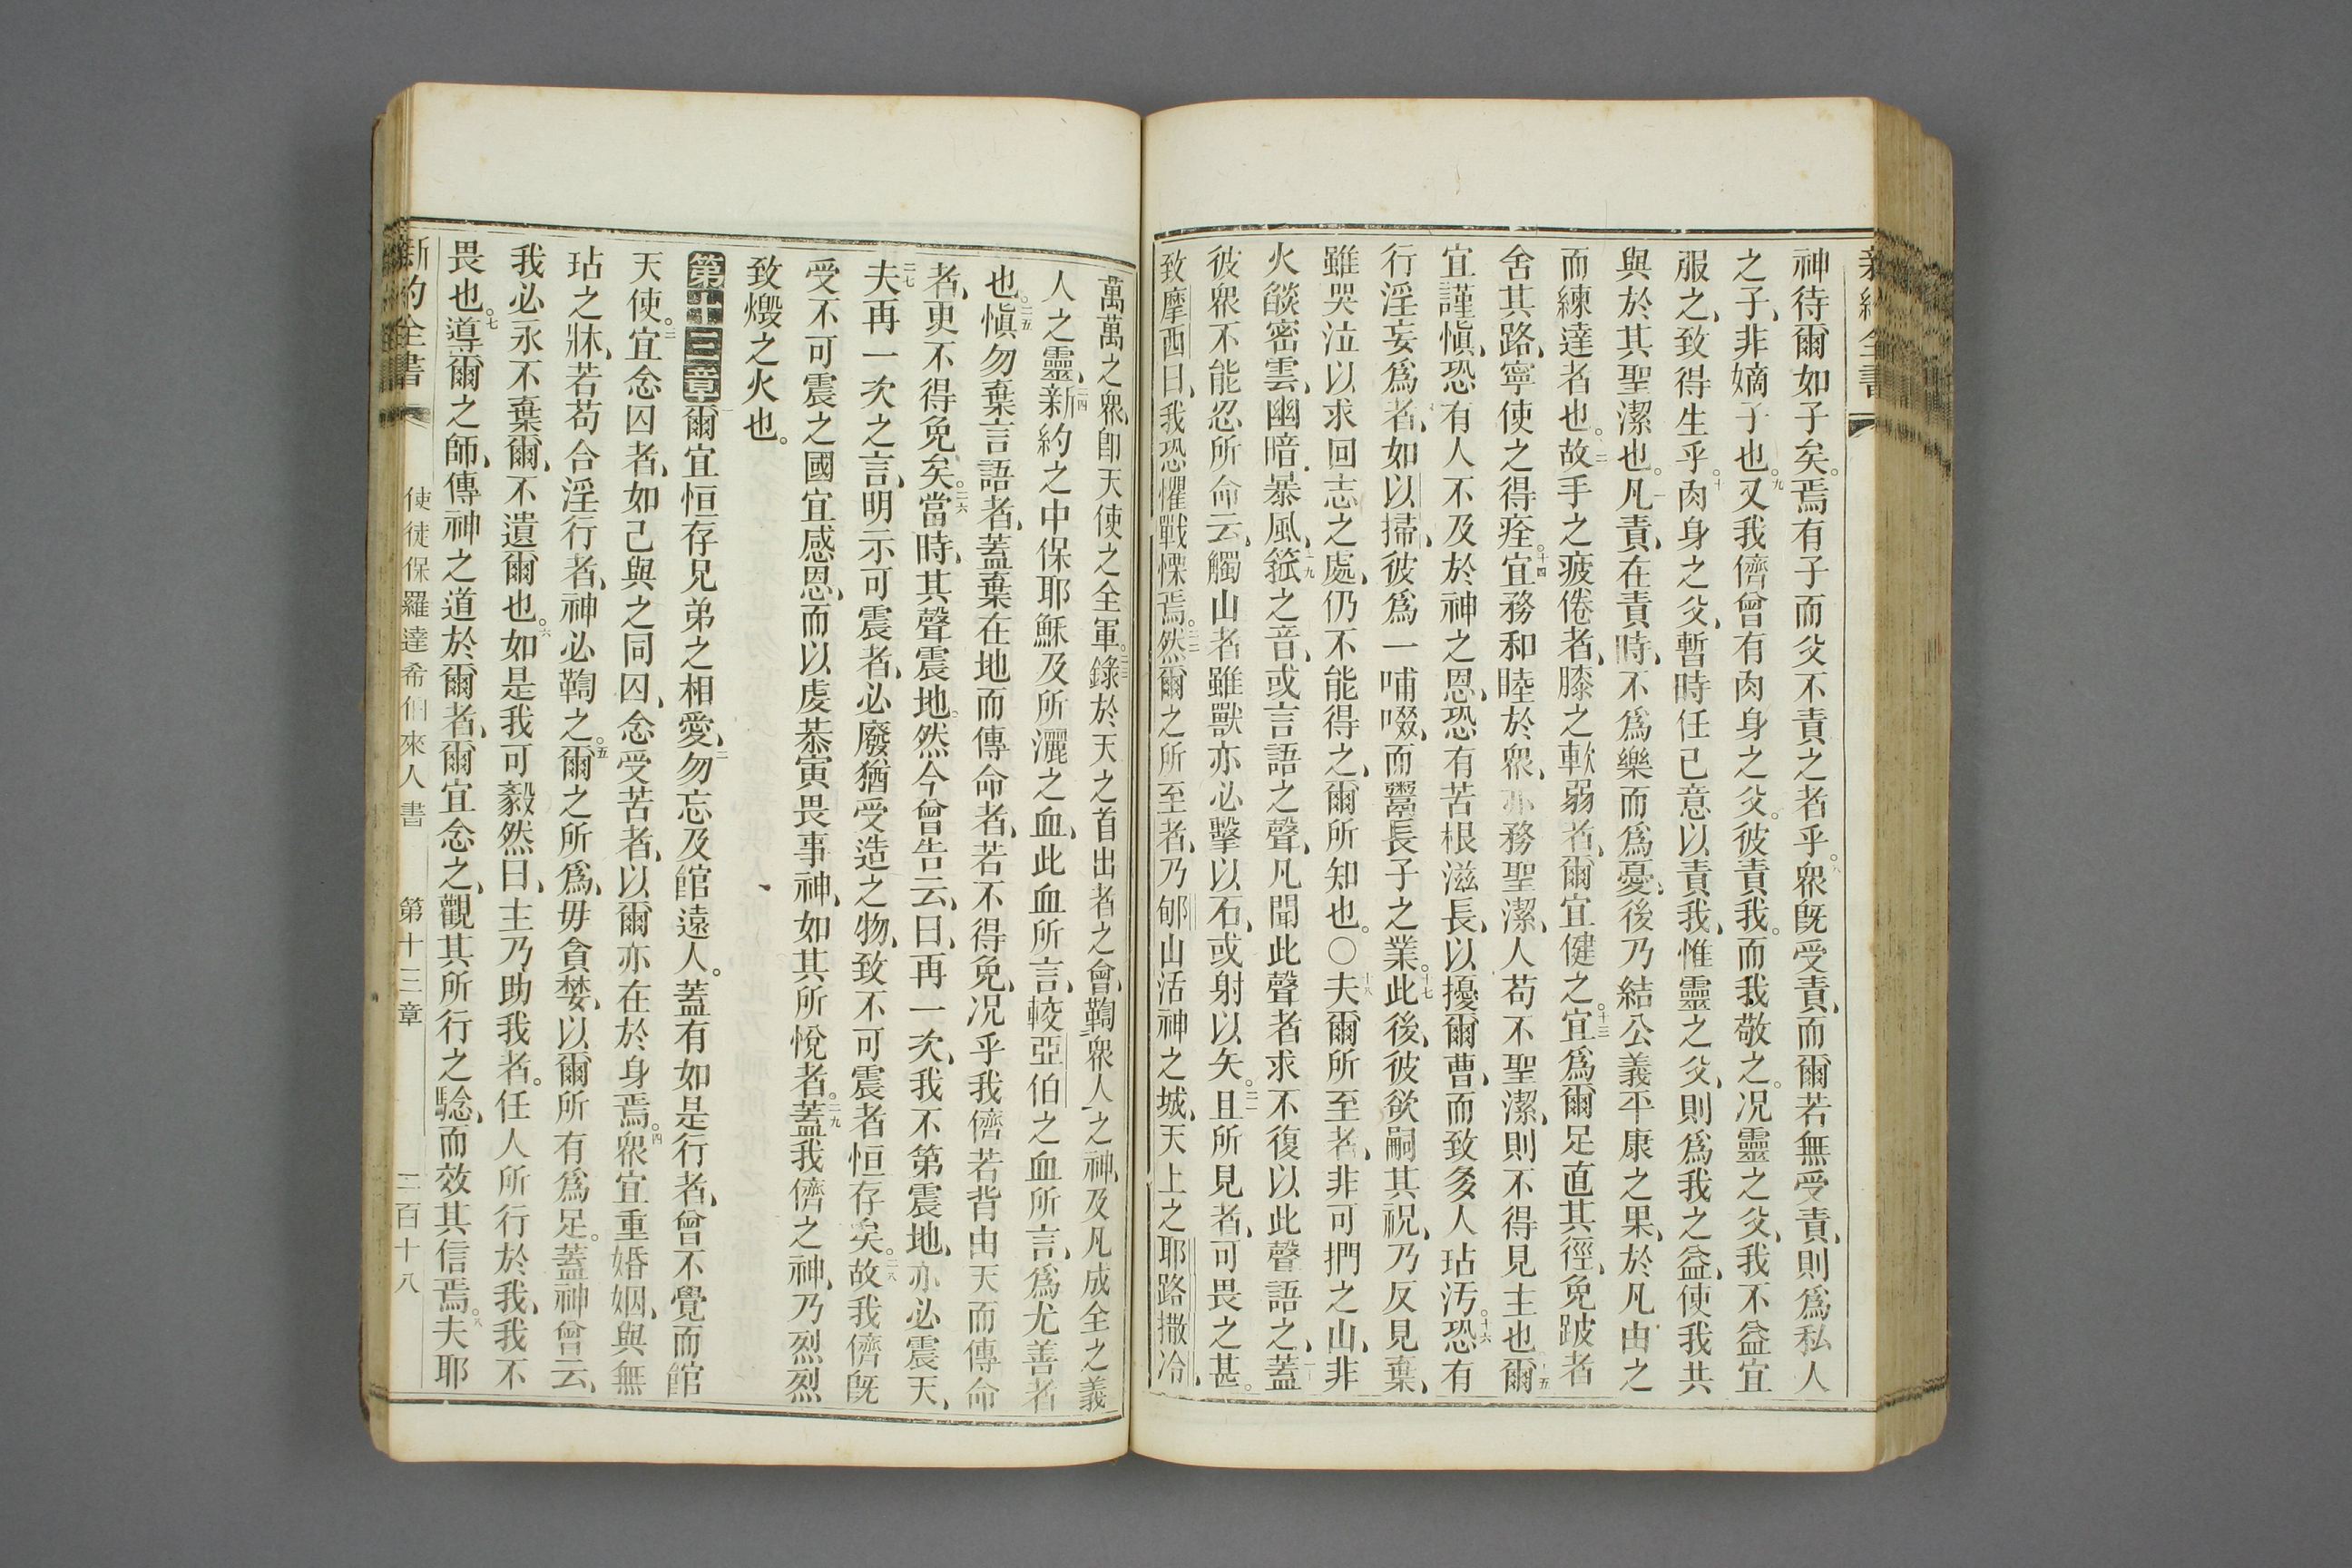 新約全書
神待爾如子矣。焉有子而父不責之者乎。八衆旣受責、而爾若無受責、則爲私人
之子、非嫡子也。九又我儕曾有肉身之父。彼責我。而我敬之。况靈之父、我不益宜
服之、致得生乎。十肉身之父、暫時任己意以責我、惟靈之父、則爲我之益、使我共
與於其聖潔也。凡責、在責時、不爲樂而爲憂、後乃結公義平康之果、於凡由之
而練達者也。故手之疲倦者、膝之軟弱者、爾宜健之。十三宜爲爾足直其徑、免跛者
舍其路、寧使之得痊。十四宜務和睦於衆、亦務聖潔、人苟不聖潔、則不得見主也爾
宜謹愼、恐有人不及於神之恩、恐有苦根滋長、以擾爾曹、而致多人玷汚。十六恐有
行淫妄爲者、如以掃、彼爲一哺啜、而鬻長子之業。十七此後、彼欲嗣其祝、乃反見棄、
雖哭泣以求回志之處、仍不能得之、爾所知也。〇十八夫爾所至者、非可捫之山、非
火燄密雲、幽暗暴風、十九箛之音、或言語之聲、凡聞此聲者求不復以此聲語之、蓋
彼衆不能忍所命云、觸山者雖獸亦必擊以石、或射以矢。二一且所見者、可畏之甚。
致摩西曰、我恐懼戰慄焉。二二然爾之所至者、乃郇山活神之城、天上之耶路撒冷、
萬萬之衆、卽天使之全軍。二三錄於天之首出者之會、鞫衆人之神、及凡成全之義
人之靈、二四新約之中保耶穌及所灑之血、此血所言、較亞伯之血所言、爲尤善者
也。二五愼勿棄言語者、蓋棄在地而傳命者、若不得免、况乎我儕若背由天而傳命
者、更不得免矣。二六當時、其聲震地。然今曾告云、曰、再一次、我不第震地、亦必震天、
二七夫再一次之言、明示可震者、必廢猶受造之物、致不可震者恒存矣。二八故我儕旣
受不可震之國宜感恩、而以虔恭寅畏事神、如其所悅者。二九蓋我儕之神、乃烈烈
致燬之火也。
第十三章爾宜恒存兄弟之相愛、二勿忘及館遠人。蓋有如是行者、曾不覺而館
天使。三宜念囚者、如己與之同囚、念受苦者、以爾亦在於身焉。四衆宜重婚姻、與無
玷之牀、若苟合淫行者、神必鞫之。五爾之所爲、毋貪婪、以爾所有爲足。蓋神曾云、
我必永不棄爾、不遺爾也。六如是我可毅然曰、主乃助我者。任人所行於我、我不
畏也。七導爾之師、傳神之道於爾者、爾宜念之、觀其所行之騐、而效其信焉。八夫耶
新約全書 使徒保羅達希伯來人書 第十三章 二百十八